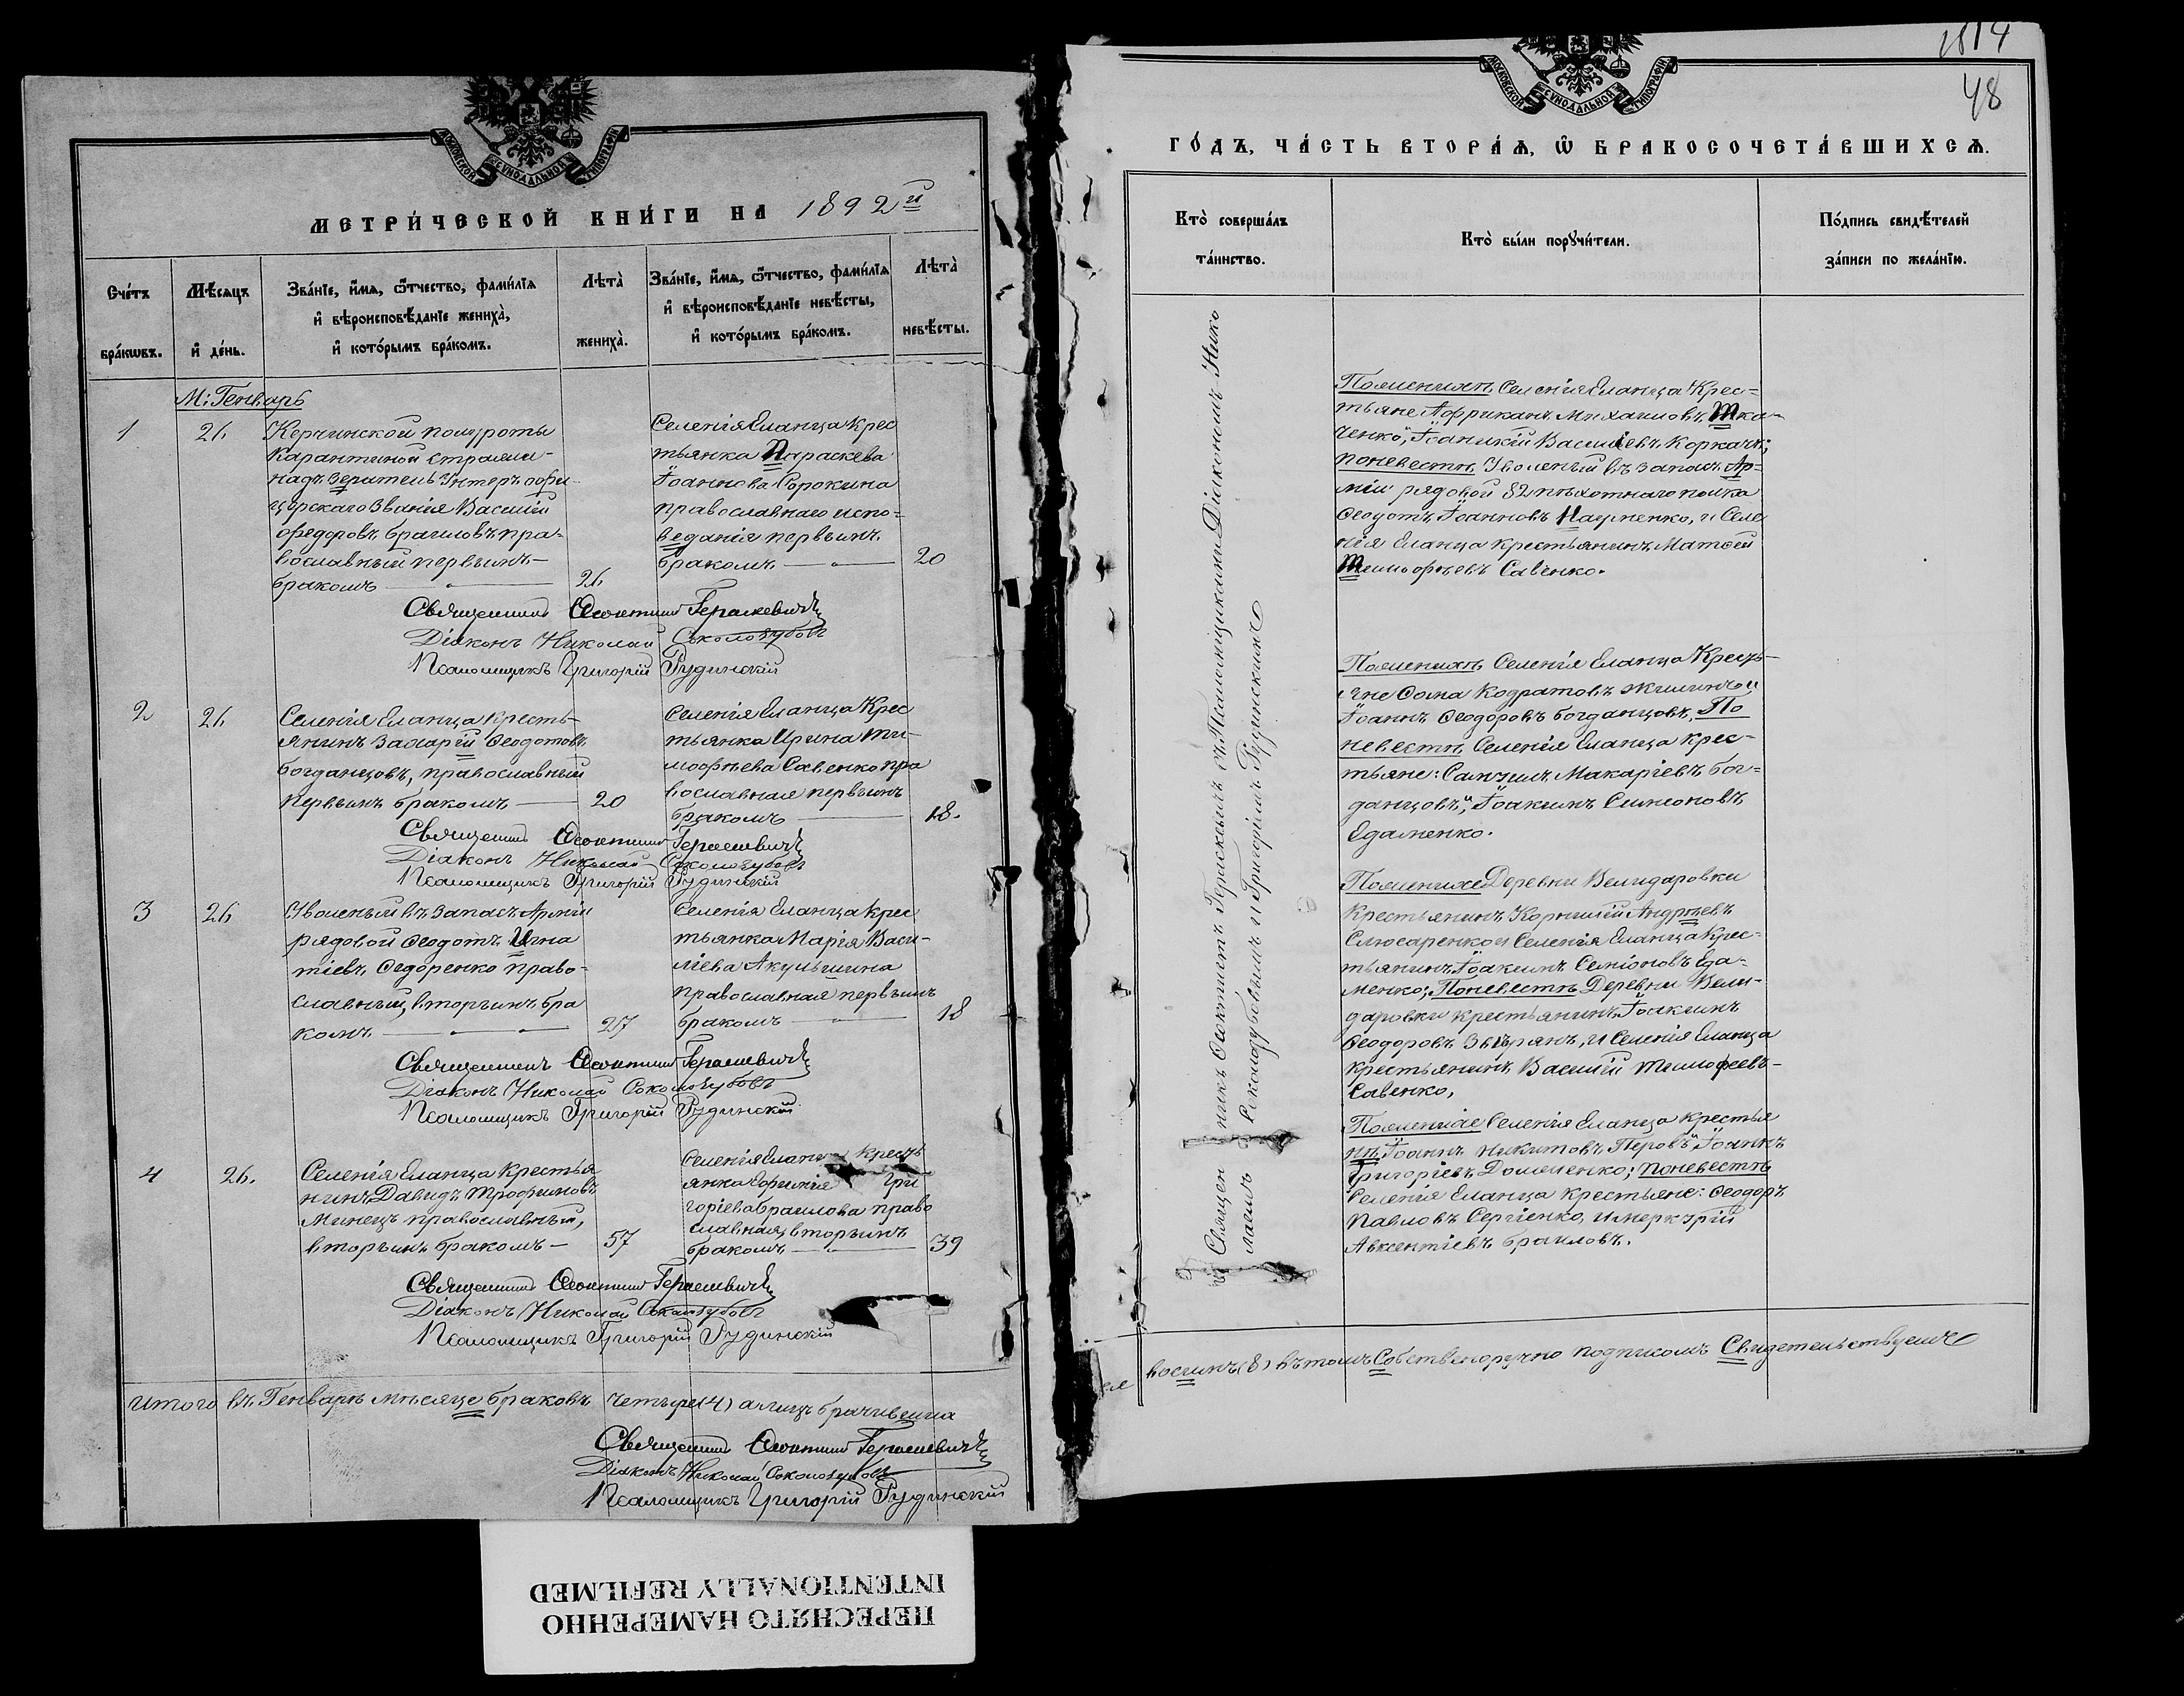 МОСКОВСКОЙ СУНОДАЛЬНОЙ ТИПОГРАФІИ
МЕТРИ́ЧЕСКОЙ КНИ́ГИ НА 1892й
Сче́тъ бра́кѡвъ.
Мѣ́сяцъ и҆ де́нь.
Зва́нїе, и҆́мѧ, ѻ҆́тчество, фами́лїѧ
и҆ вѣроисповѣ́данїе жениха̀,
и҆ кото́рымъ бра́комъ.
Лѣта̀ жениха̀.
Зва́нїе, и҆́мѧ, ѻ҆́тчество, фами́лїѧ
и҆ вѣроисповѣ́данїе невѣ́сты,
и҆ кото́рымъ бра́комъ.
Лѣта̀ невѣ́сты.
М: Генварь
1 26
Керчинской полуроты
Карантиной стражи
надзератель Унтеръ офи-
церскаго Званія Василій
Федоровъ Браиловъ пра-
вославный первымъ
бракомъ 26
Селенія Еланца крес
тьянка Параскева
Іоаннова Сорокина
православнаго испо-
веданія первымъ
бракомъ 20
Священникъ Феоктистъ Гераскевичъ
Діаконъ Николай Соколозубовъ
Псаломщикъ Григорій Рудинскій
2 26
Селенія Еланца Кресть-
янинъ Захарій Феодотовъ
Богданцовъ, православный
первымъ бракомъ 20
Селенія Еланца Крес
тьянка Ирина Ти-
мофѣева Савенко пра
вославная первымъ
бракомъ 18.
Священникъ Феоктистъ Гераскевичъ
Діаконъ Николай Соколозубовъ
Псаломщикъ Григорій Рудинскій
3 26
Уволеный въ запасъ Арміи
рядовой Феодотъ Игна
тіевъ Федоренко право-
славный, вторымъ бра
комъ 27
Селенія Еланца крес
тьянка Марія Васи-
ліева Акульшина
православная первымъ
бракомъ 18
Священникъ Феоктистъ Гераскевичъ
Діаконъ Николай Соколозубовъ
Псаломщикъ Григорій Рудинскій
4 26.
Селенія Еланца Крестья
нинъ Давидъ Трофимовъ
Минецъ православный,
вторымъ бракомъ 57
Селенія Еланца Кресть
янка Евфимія Гри
горіева Браилова право
славная, вторымъ
бракомъ 39
Священникъ Феоктистъ Гераскевичъ
Діаконъ Николай Соколозубовъ
Псаломщикъ Григорій Рудинскій
Итого въ Генварѣ мѣсяце браковъ четыре (4) а лицъ
Священникъ Феоктистъ Гераскевичъ
Діаконъ Николай Соколозубовъ
Псаломщикъ Григорій Рудинскій
ПЕРЕСНЯТО НАМЕРЕННО
INTENTIONALLY REFILMED
48
МОСКОВСКОЙ СУНОДАЛЬНОЙ ТИПОГРАФІИ
ГО́ДЪ, ЧА́СТЬ ВТОРА́Ѧ, Ѡ҆ БРАКОСОЧЕТА́ВШИХСѦ.
Кто̀ соверша́лъ
та́инство.
Кто̀ бы́ли порꙋчи́тели.
По́дпись свидѣ́телей
за́писи по жела́нїю.
Священникъ Феоктистъ Гераскевичъ съ Псаломщиками Діакономъ Нико
лаемъ Соколозубовымъ и Григоріемъ Рудинскимъ
Пожениху Селенія Еланца Крес-
тьяне Африканъ Михаиловъ Тка-
ченко, Іоаникій Васильевъ Коркачъ;
поневестѣ Уволеный въ запасъ Ар-
міи рядовой 52 пѣхотнаго полка
Феодотъ Іоанновъ Науменко, и Селе
нія Еланца крестьянинъ Матвей
Тимофѣевъ Савенко.
Пожениху Селенія Еланца Кресть-
яне Фома Кодратовъ Жилинъ и
Іоаннъ Феодоровъ Богданцовъ, По
невестѣ Селенія Еланца Крес-
тьяне: Самуилъ Макаріевъ Бог-
данцовъ, Іоакимъ Симоновъ
Едаменко.
Пожениху Деревни Велидаровки
Крестьянинъ Корнилій Андрѣевъ
Слюсаренко и Селенія Еланца Крес-
тьянинъ Іоакимъ Симоновъ Еда-
менко; Поневестѣ Деревни Вели-
даровки крестьянинъ Іоакимъ
Феодоровъ Звѣрянъ, и Селенія Еланца
Крестьянинъ Василій Тимофеевъ
Савенко,
Пожениху Селенія Еланца крестья
нѣ Іоаннъ Никитовъ Перовъ, Іоаннъ
Григоріевъ Доляченко; поневестѣ
Селенія Еланца крестьяне: Феодоръ
Павловъ Сергіенко, и Меркурій
Авксентіевъ Браиловъ.
восимъ (8) въ томъ Собственоручно подписомъ Свидетельствуемъ